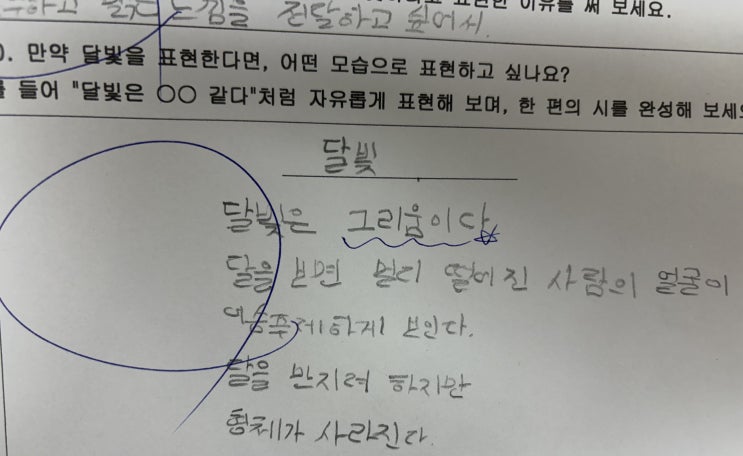 하고 느낌을 전달하고 싶어서.
표현한 이유를 써 보세요.
0. 만약 달빛을 표현한다면, 어떤 모습으로 표현하고 싶나요?
를 들어 "달빛은 ○○ 같다"처럼 자유롭게 표현해 보며, 한 편의 시를 완성해 보세요
달빛
달빛은 그리움이다
달을 보면 멀리 떨어진 사람의 얼굴이
보인다.
달을 만지려 하지만
형체가 사라진다.